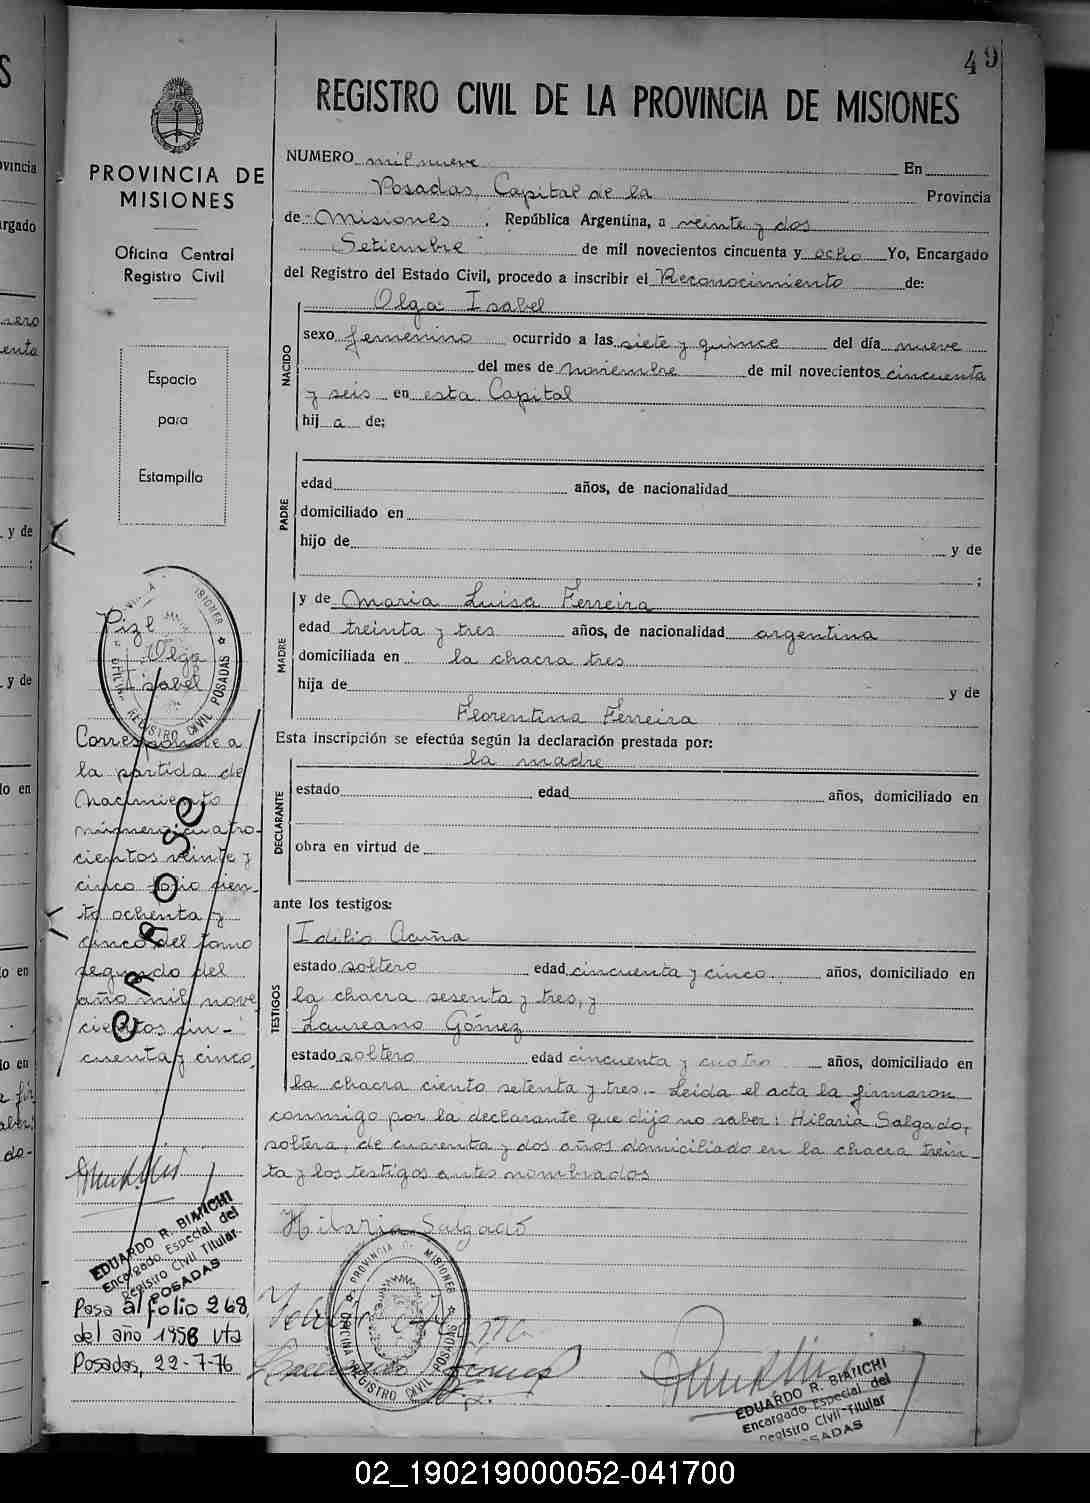 49
REGISTRO CIVIL DE LA PROVINCIA DE MISIONES
PROVINCIA DE
MISIONES
Oficina Central
Registro Civil
Espacio
para
Estampilla
NUMERO mil nueve En
Posadas, Capital de la Provincia
de Misiones, República Argentina, a veinte y dos
Setiembre de mil novecientos cincuenta y ocho Yo, Encargado
del Registro del Estado Civil, procedo a inscribir el Reconocimiento de:
Olga Isabel
NACIDO
sexo femenino ocurrido a las siete y quince del día nueve
del mes de noviembre de mil novecientos cincuenta
y seis en esta Capital
hij a de;
PADRE
edad años, de nacionalidad
domiciliado en
hijo de y de
;
MADRE
y de Maria Luisa Ferreira
edad treinta y tres años, de nacionalidad argentina
domiciliada en la chacra tres
hija de y de
Florentina Ferreira
Esta inscripción se efectúa según la declaración prestada por:
la madre
DECLARANTE
estado edad años, domiciliado en
obra en virtud de
ante los testigos:
TESTIGOS
Idilio Acuña
estado soltero edad cincuenta y cinco años, domiciliado en
la chacra sesenta y tres, y
Laureano Gómez
estado soltero edad cincuenta y cuatro años, domiciliado en
la chacra ciento setenta y tres.- Leída el acta la firmaron
conmigo por la declarante que dijo no saber: Hilaria Salgado,
soltera, de cuarenta y dos años domiciliado en la chacra trein-
ta y los testigos antes nombrados
Hilaria Salgado
Olga
Isabel
Corresponde a
la partida de
Nacimiento
número cuatro-
cientos veinte y
cinco folio cien-
to ochenta y
cinco del tomo
segundo del
año mil nove
cientos cin-
cuenta y cinco.
ERROSE
EDUARDO R. BIANCHI
Encargado Especial del
Registro Civil Titular
POSADAS
Pasa al folio 268
del año 1958 vta
Posadas, 22-7-76
PROVINCIA DE MISIONES
OFICINA REGISTRO CIVIL POSADAS
EDUARDO R. BIANCHI
Encargado Especial del
Registro Civil Titular
POSADAS
02_190219000052-041700